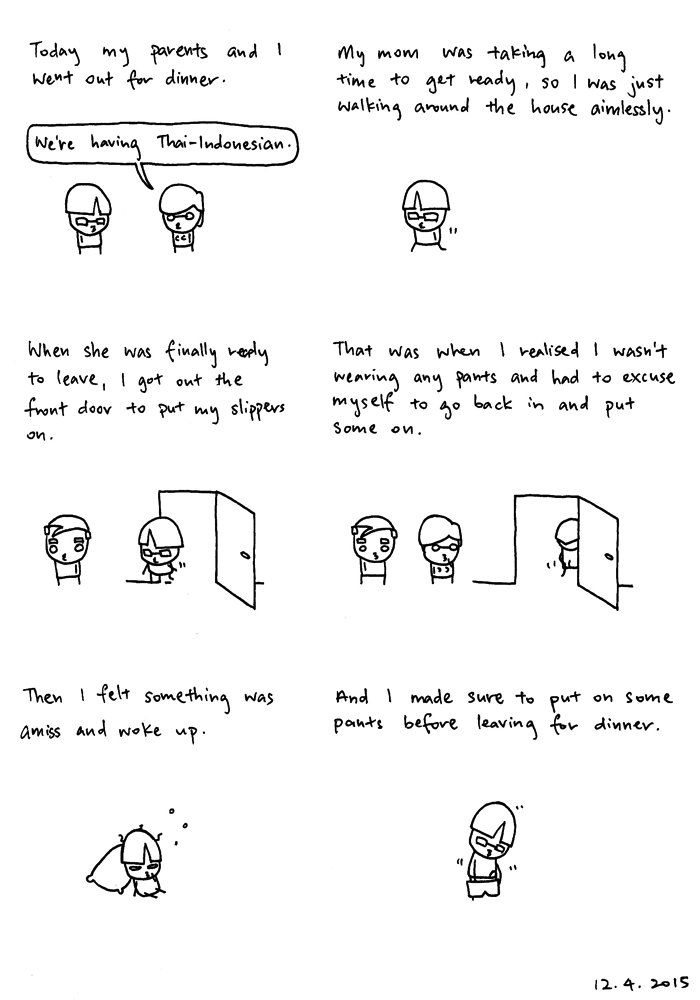 Today my parents and I
went out for dinner.
We're having Thai-Indonesian.
My mom was taking a long
time to get ready, so I was just
walking around the house aimlessly.
When she was finally ready
to leave, I got out the
front door to put my slippers
on.
That was when I realised I wasn't
wearing any pants and had to excuse
myself to go back in and put
some on.
Then I felt something was
amiss and woke up.
And I made sure to put on some
pants before leaving for dinner.
12.4.2015